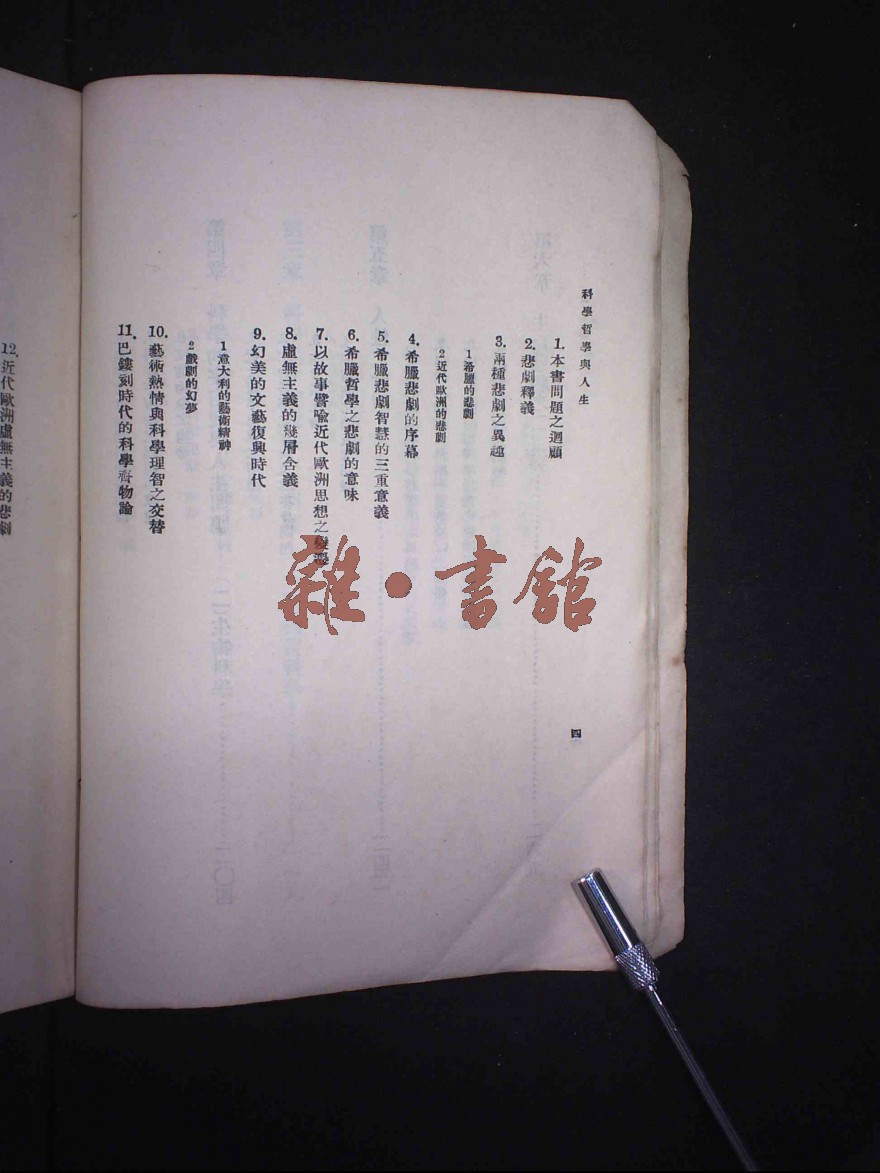 科學哲學與人生
1. 本書問題之迴顧
2. 悲劇釋義
3. 兩種悲劇之異趣
1 希臘的悲劇
2 近代歐洲的悲劇
4. 希臘悲劇的序幕
5. 希臘悲劇智慧的三重意義
6. 希臘哲學之悲劇的意味
7. 以故事譬喻近代歐洲思想之變遷
8. 虛無主義的幾層含義
9. 幻美的文藝復興時代
1 意大利的藝術精神
2 戲劇的幻夢
10. 藝術熱情與科學理智之交替
11. 巴鏤刻時代的科學齊物論
四
12. 近代歐洲虛無主義的悲劇
雜·書館